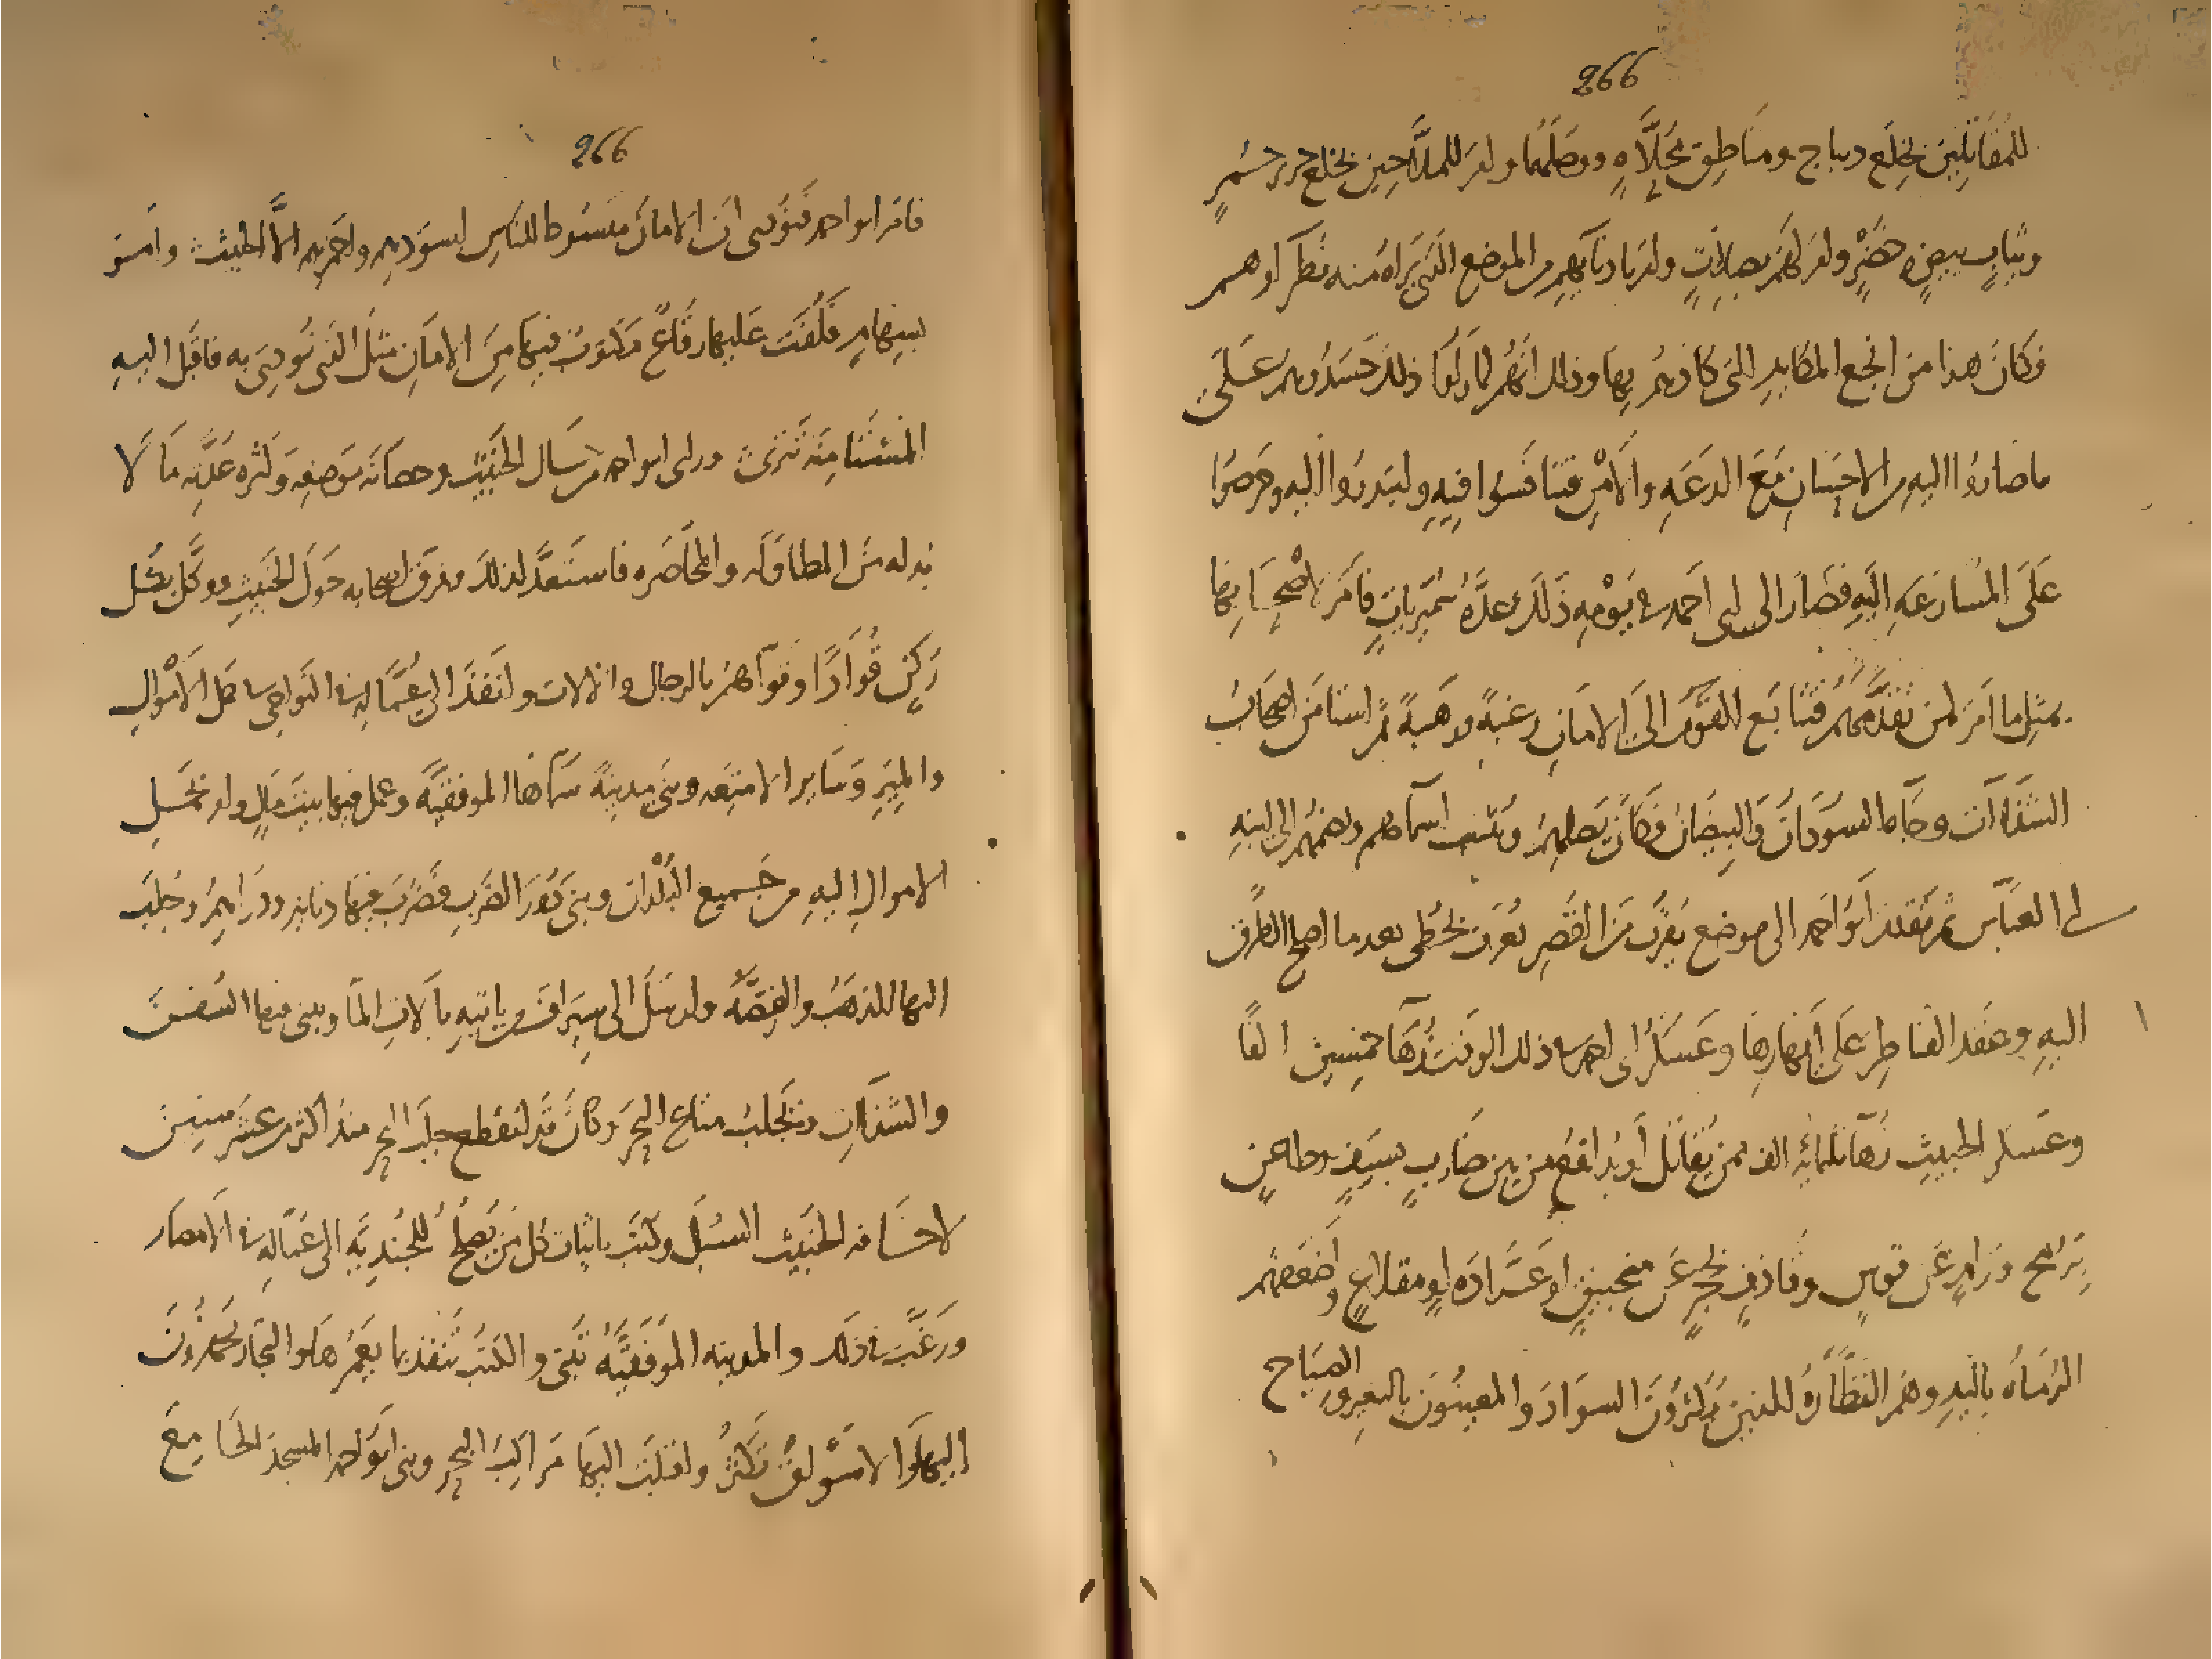 266
للمُقَاتِلِينَ بخِلَع ديباج ومَناطِق مُحَلَّاهٍ ووصَلَهُما وامر للملَّاحِين بخلع حرير حُمْرٍ
وثيابٍ بيضٍ وحضَرٍ وامر لهُم بصِلاتٍ وامر بادنآيهم من الموضع الذي يَراهُم منه نُظَرآوهم
فكَانَ هذا من انجع المكايدِ التي كادهُم بِها وذلك انَّهُم لمَّا راوا ذلك حَسَدُوهم عَلَى
ما صَارُوا اليه من الاحسَانِ مَعَ الدعَهِ والاَمْنِ فتنافسُوا فيه وابتدرُوا اليه وحرصُوا
عَلَى المُسارَعَهِ اليه فصَارَ الى ابى احمد في يَوْمِه ذَلَك عدَّهُ سُمَيريَاتٍ فامَر لاصْحِابِهَا
بمثِل ما امر لمن تقدَّمهُم فتتابَع القَوْمُ الى الامَانِ رغبهً ورهبهً ثم استامَن اصحَابُ
الشذَاآت وحآءَ السودَانُ والبِيضَانُ فكانَ يَصلهُم ويُثبت اسمآهم ويضمهم الى ابنه
ابى العبَّاس ثم تقدم ابو احمد الى موضع بقُرب من القَصِر يُعرف بخُطَّى بعد ما اصلح الطُرق
اليه وعقَد القناطِر عَلَى اَنهارِها وعَسكَر ابى احمد في ذلك الوقت زُهَآ خمسين الفًا
وعسكر الخبيث زُهآ ثلثمائه الف ممن يُقاتل أو يُدافعُ من بين ضَاربٍ بسَيفٍ وطاعنٍ
بِرُمح ورَامٍ عَن قوسٍ وقاذفٍ بحجرٍ عَن منجنيقٍ او عَرَّادَه او مقلاعٍ واضعَفهُم
الرُمَاهُ باليَدِ وهُم النظَّارهُ المعينِينَ يُكثرُونَ السوَادَ والمعينُونَ بالنعير والصِيَاح
266
فامَر ابو احمد فنُودى ان الامانَ مبسُوط للنَاس اسوَدهم واحمَرهم الا الخبيث وامَر
بسِهامٍ فعُلقت عَليها رقَاعٌ مكتوب فيهَا مِنَ الامَانِ مثلَ الذي نُودِىَ به فاقبَل اليه
المُستَامِنَه تَترَى ورأى ابو احمد من حَال الخَبيث وحصانَه مَوضِعه وكثره عَدَدِه مَا لا
بُد له مَن المطاوَلَه والمحاصَره فاستَعدَّ لذلك وفرق اصحابه حَولَ الخبيث ووكَّل بكل
رُكنٍ قُوَّادًا وقوَّاهم بالرجال والالات وانفذَ الى عُمَّاله في النَواحى في حمل الاَمْوالِ
والمِيَرِ وسَاير الامتِعَه وبَنى مدينهً سمَّاهَا الموفقيَّه وعمل فيها بيتَ مَالٍ وامر بحَمل
الاموال اليه من جَميع البُلْدان وبنى دُورَ الضَرب فضُرِبَ فيها دنانير ودراهِم وجُلب
اليها الذهَبُ والفِضَّهُ وارسَلَ الى سِيرَافَ من ياتيه بآلاتِ المَآ وبنى فيها السُفن
والشذَاآت وتجَلبُ متاع البَحر وكانَ قد انقطع جلَب البحر منذ اكثر من عشر سنِينَ
لاخافه الخَبيث السُبلَ وكتَب باثباتِ كُل مَن يَصلُح للجُنديَّهِ الى عُمَّاله في الامصَار
ورَغَّب في ذلك والمدينه الموفقيَّهُ تُبنى والكتبُ تنفذ بما يعمُرُهَا والتجار يجهّزُونَ
اليهَا والاَسْوَاقُ تكثُر واقبَلت اليهَا مَراكِبُ البحر وبنى ابو احمد المسجد الجَامِعَ